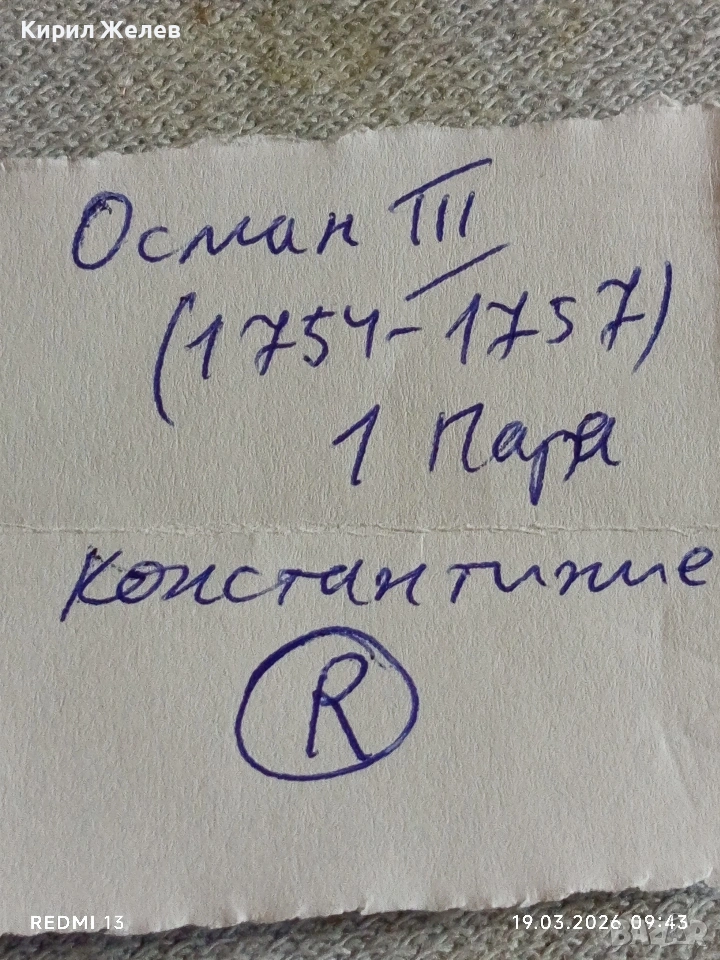 Кирил Желев
Осман III
(1754-1757)
1 Пара
Константиние
R
REDMI 13
19.03.2026 09:43
BAZAR